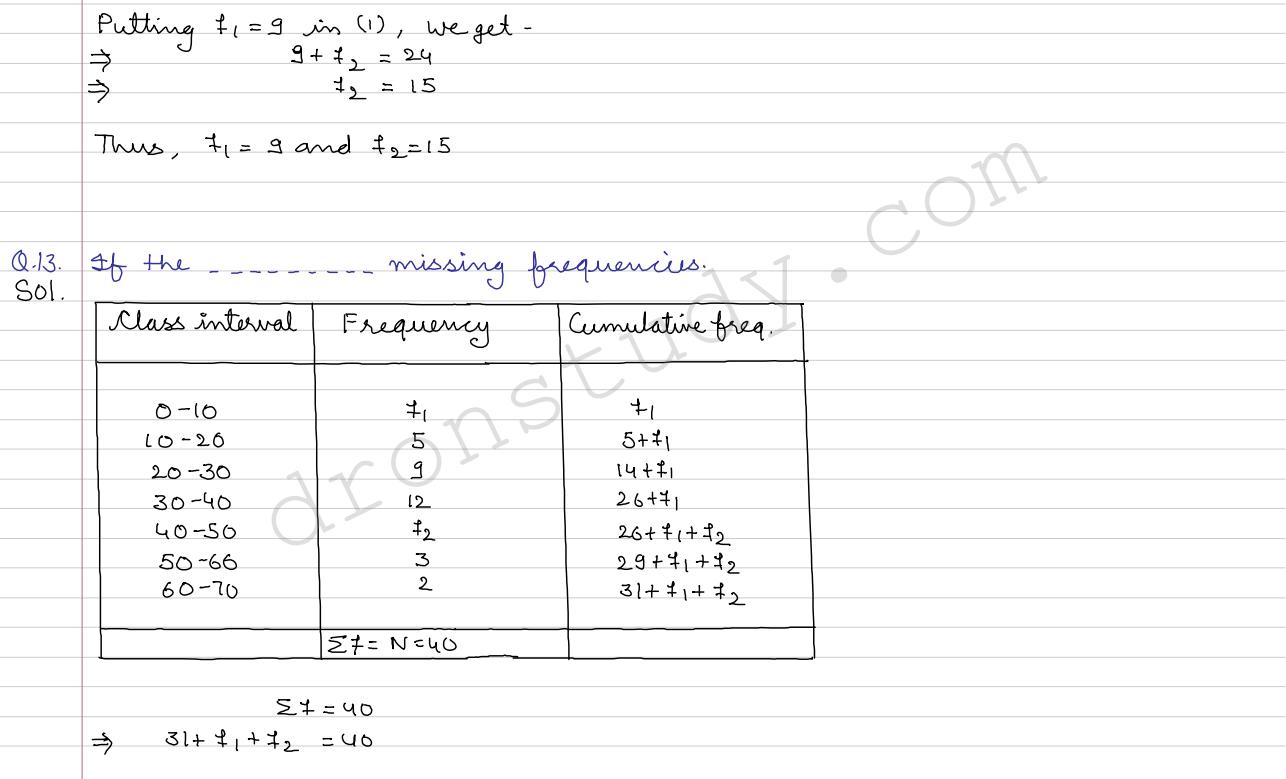 Putting f₁ = 9 in (1), we get -
⇒ 9 + f₂ = 24
⇒ f₂ = 15
Thus, f₁ = 9 and f₂ = 15
Q.13. If the --------- missing frequencies.
Sol.
Class interval Frequency Cumulative freq.
0-10 f₁ f₁
10-20 5 5+f₁
20-30 9 14+f₁
30-40 12 26+f₁
40-50 f₂ 26+f₁+f₂
50-60 3 29+f₁+f₂
60-70 2 31+f₁+f₂
Σf = N = 40
Σf = 40
⇒ 31 + f₁ + f₂ = 40
dronstudy.com